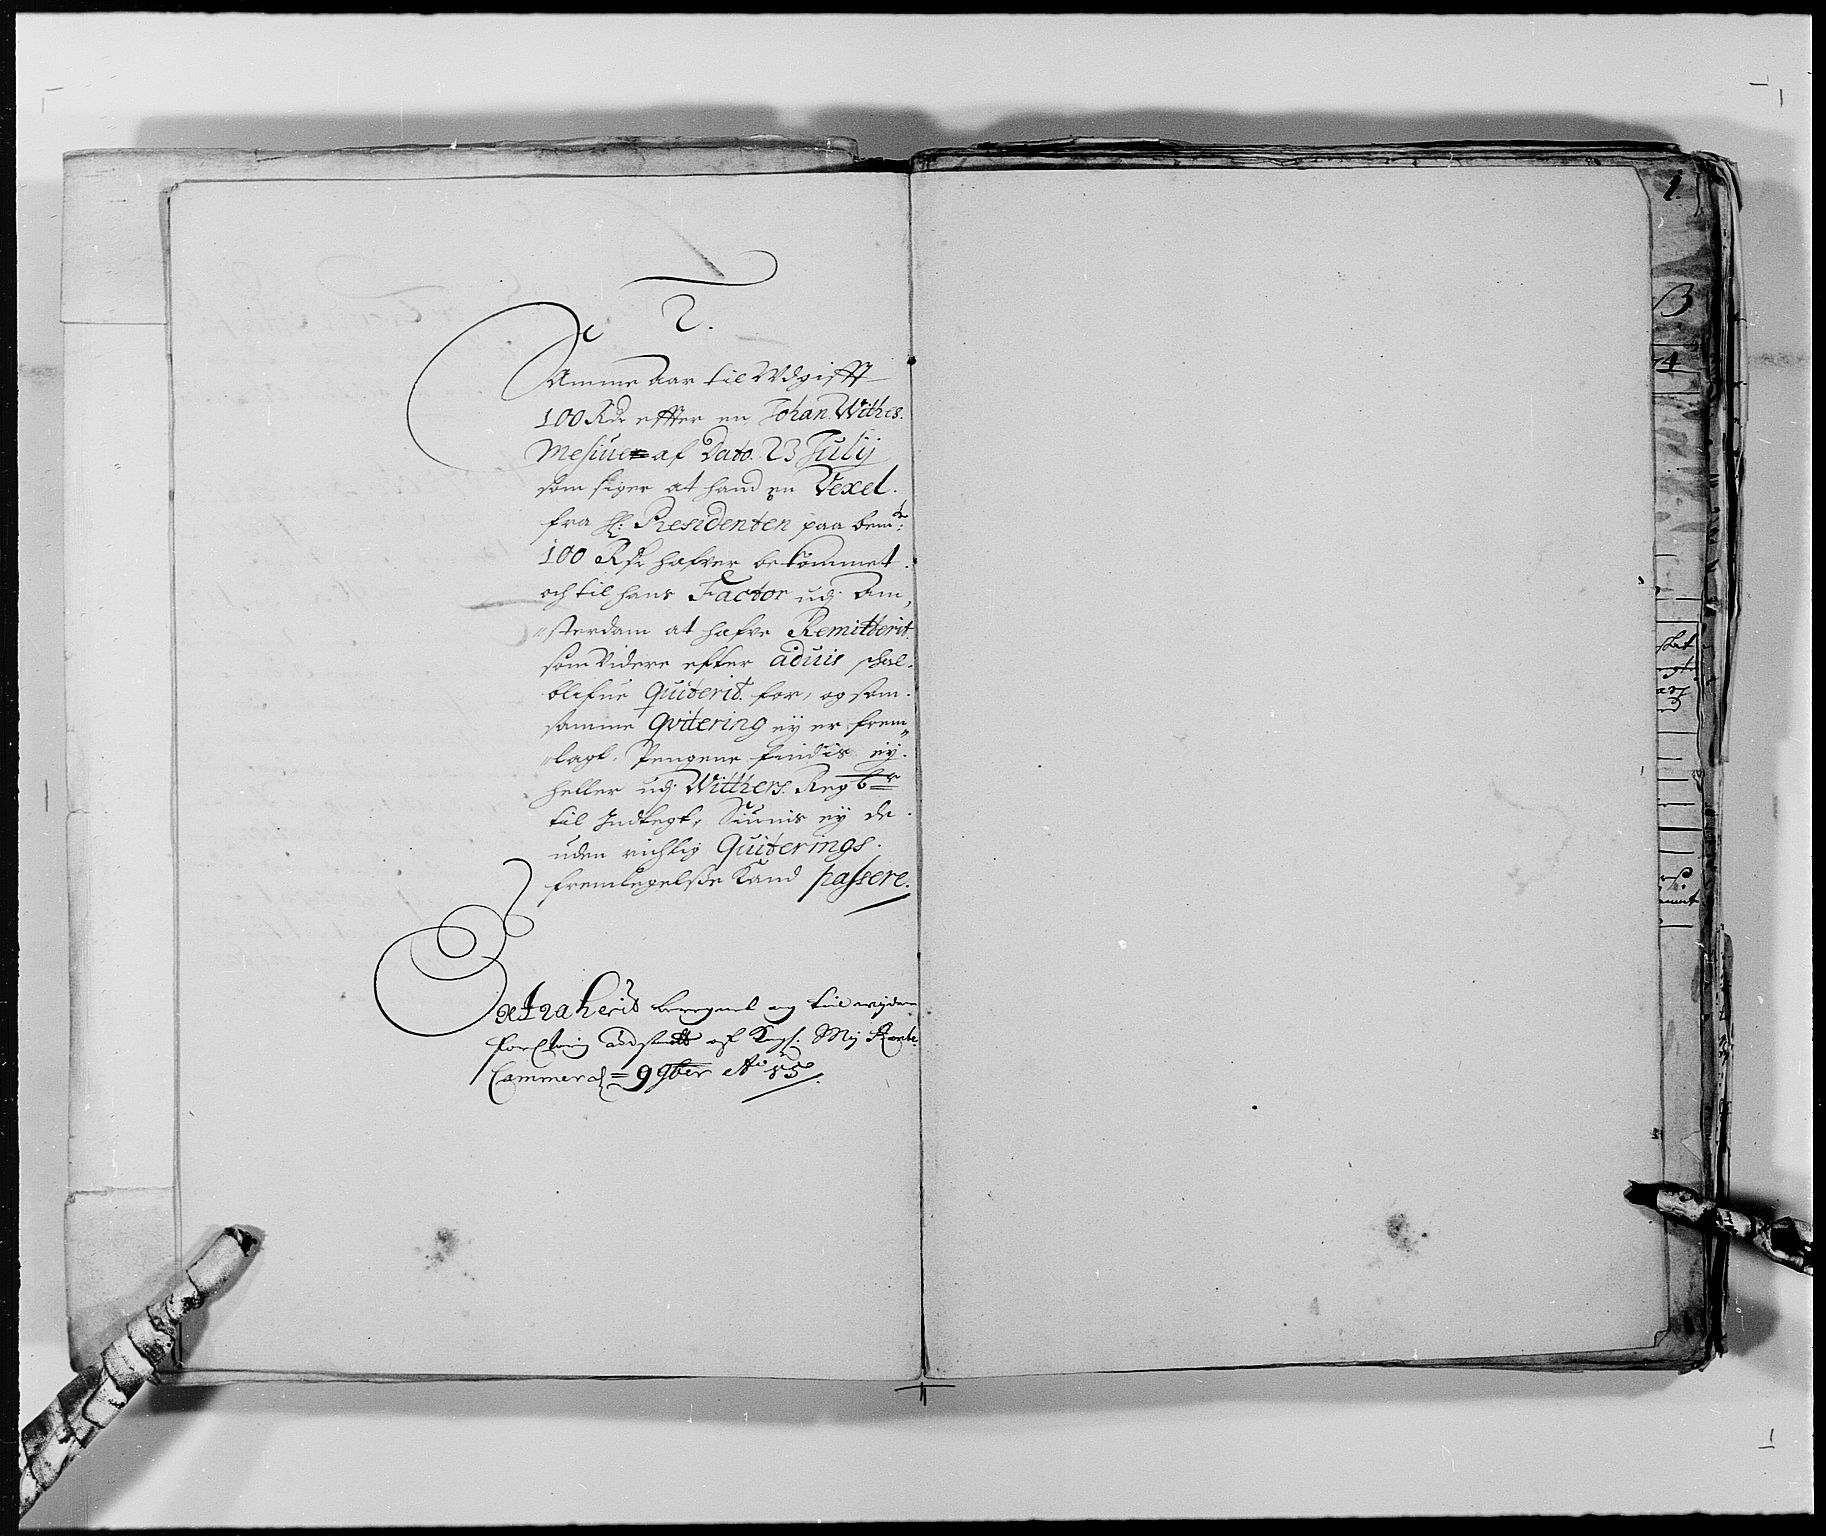 2.
Samme Aar til Udgifft
100 Rdr effter en Johan Withes.
Mesiue af Dato. 23 July
som siger at hand en Vexel.
fra H: Presidenten paa bemte:
100 Rdr hafver bekommet.
och til hans Factor udj Am„
„sterdam at hafve Remitterit.
som Videre efter aduis schal.
blifue Quiterit. for, og som.
samme Qvitering ey er frem„
„lagt. Pengene findis ey.
heller udj Witthers. Reg
til Indtegt, Siunis ey de.
uden richtig Quiterings.
fremleggelse Kand passere.
Extraherit beregnet og til
af Kongl. May Rente
Cammer 9 9ber Ao 85
1.
B
74